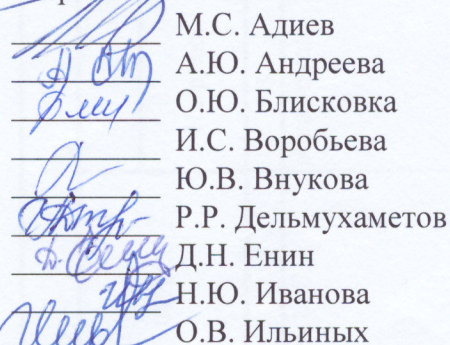 М.С. Адиев
А.Ю. Андреева
О.Ю. Блисковка
И.С. Воробьева
Ю.В. Внукова
Р.Р. Дельмухаметов
Д.Н. Енин
Н.Ю. Иванова
О.В. Ильиных